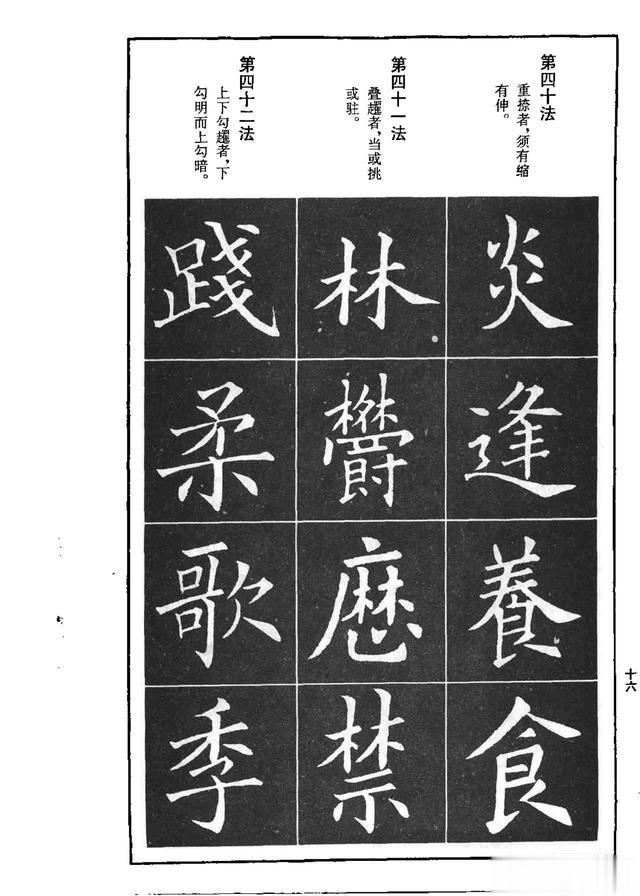 第四十法
重捺者，须有缩
有伸。
炎
逢
養
食
第四十一法
叠趯者，当或挑
或驻。
林
欎
愿
禁
第四十二法
上下勾趯者，下
勾明而上勾暗。
踐
柔
歌
季
十六